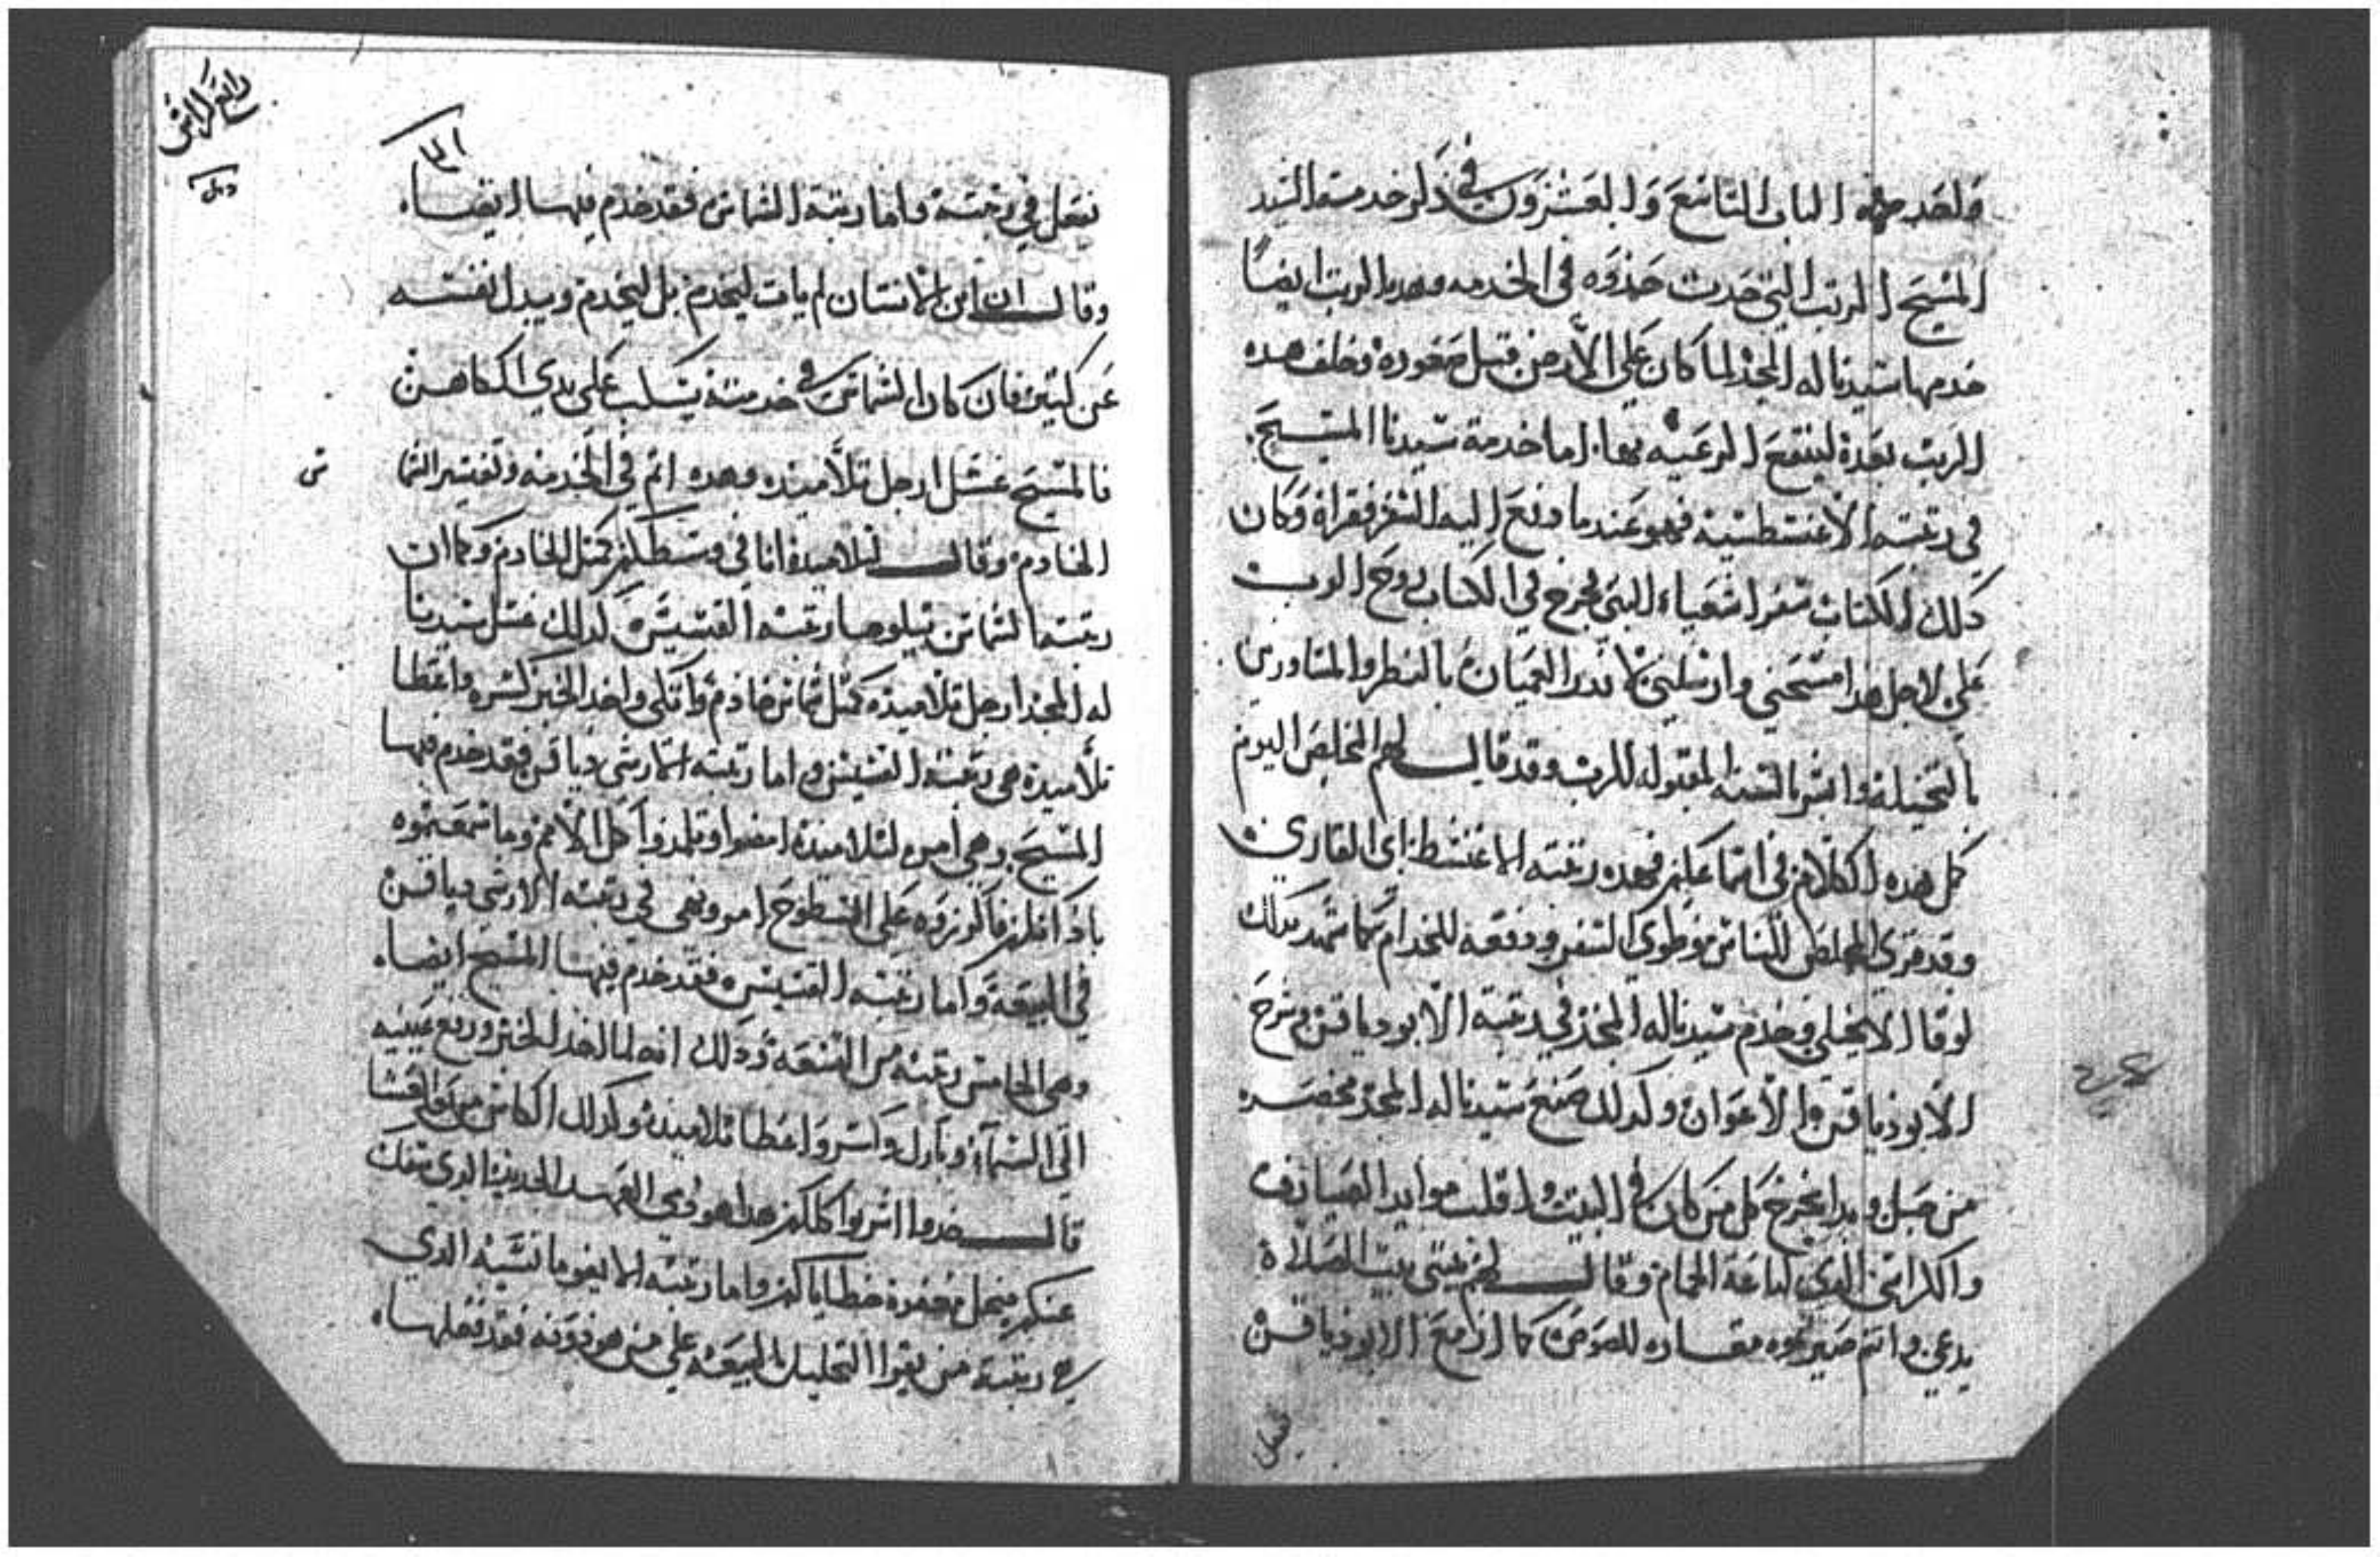 الباب التاسع والعشرون في ذكر خدمة السيد
المسيح المرتب التي حدت حذوه في الخدمه وهده الرتب ايضًا
خدمها سيدنا له المجد لما كان علي الأرض قبل صعوده وخلف هده
الرتب بعده لينتفع الرعيه بها. اما خدمة سيدنا المسيح.
في رتبته الأغنسطسيه فهو عندما دفع اليه السفر فقراه وكان
دلك الكتاب سفر اشعياء النبي فخرج في الكتاب روح الرب
علي لاجل هدا مسحني وارسلني لأندر العميان بالنظر والماسورين
بالتخيله وابشر بالسنه المقبوله للرب وقد قال لهم المخلص اليوم
كمل هده الكلام في اسماعكم فهده رتبته الاغنسط اي القاري
وقد قري المخلص للناس وطوي السفر ودفعه للخدام كما شهد بدلك
لوقا الانجيلي وخدم سيدنا له المجد في رتبة الأبودياقن وشرح
الأبودياقن الأعوان وكدلك صنع سيدنا له المجد مخصره
من حبل وبدا يخرج كل من كان في البيت واقلب موايد الصيارف
والكراسي الدي لباعة الحمام وقال لهم بيتي بيت الصلاة
يدعي وانتم صيرتموه مغاره للصوص كما ان مع الابودياقن
نفعل في رتبته واما رتبة الشماس فقد خدم فيها ايضا.
وقال ان ابن الانسان لم يات ليخدم بل ليخدم ويبدل نفسه
عن كتير فان كان الشماس في خدمته يسكب علي يدي الكاهن
فالمسيح غسل ارجل تلاميده وهده اتم في الخدمه وتفسير الشما
س
الخادم وقال لتلاميده انا في وسطكم كمتل الخادم وكما ان
رتبة الشماس يتلوها رتبة القسيس كدلك غسل سيدنا
له المجد ارجل تلاميده كمتل شماس خادم واتكي واخد الخبز كسره واعطا
تلاميده هي رتبة القسيس واما رتبته ارشي دياقن فقد خدم فيها
المسيح وهي امره لتلاميده امضوا وتلمدوا كل الأمم وما سمعتموه
باداكم فاكرزوه علي السطوح امر ونهي في رتبة الارشي دياقن
في البيعة واما رتبة القسيس فقد خدم فيها المسيح ايضا.
وهي الخامس رتبه من التسعة ودلك انه لما اخد الخبز ورفع عينيه
الي السماء وبارك وكسر واعطا تلاميده وكدلك الكاس من بعد العشا
قال خدوا اشربوا كلكم هدا هو دمي العهد الجديد الدي يسفك
عنكم لمغفرة خطاياكم واما رتبة الايغومانسيه الدي
هي رتبة من يقرا التحليل بالبيعه علي من هو دونه فقد فعلها.